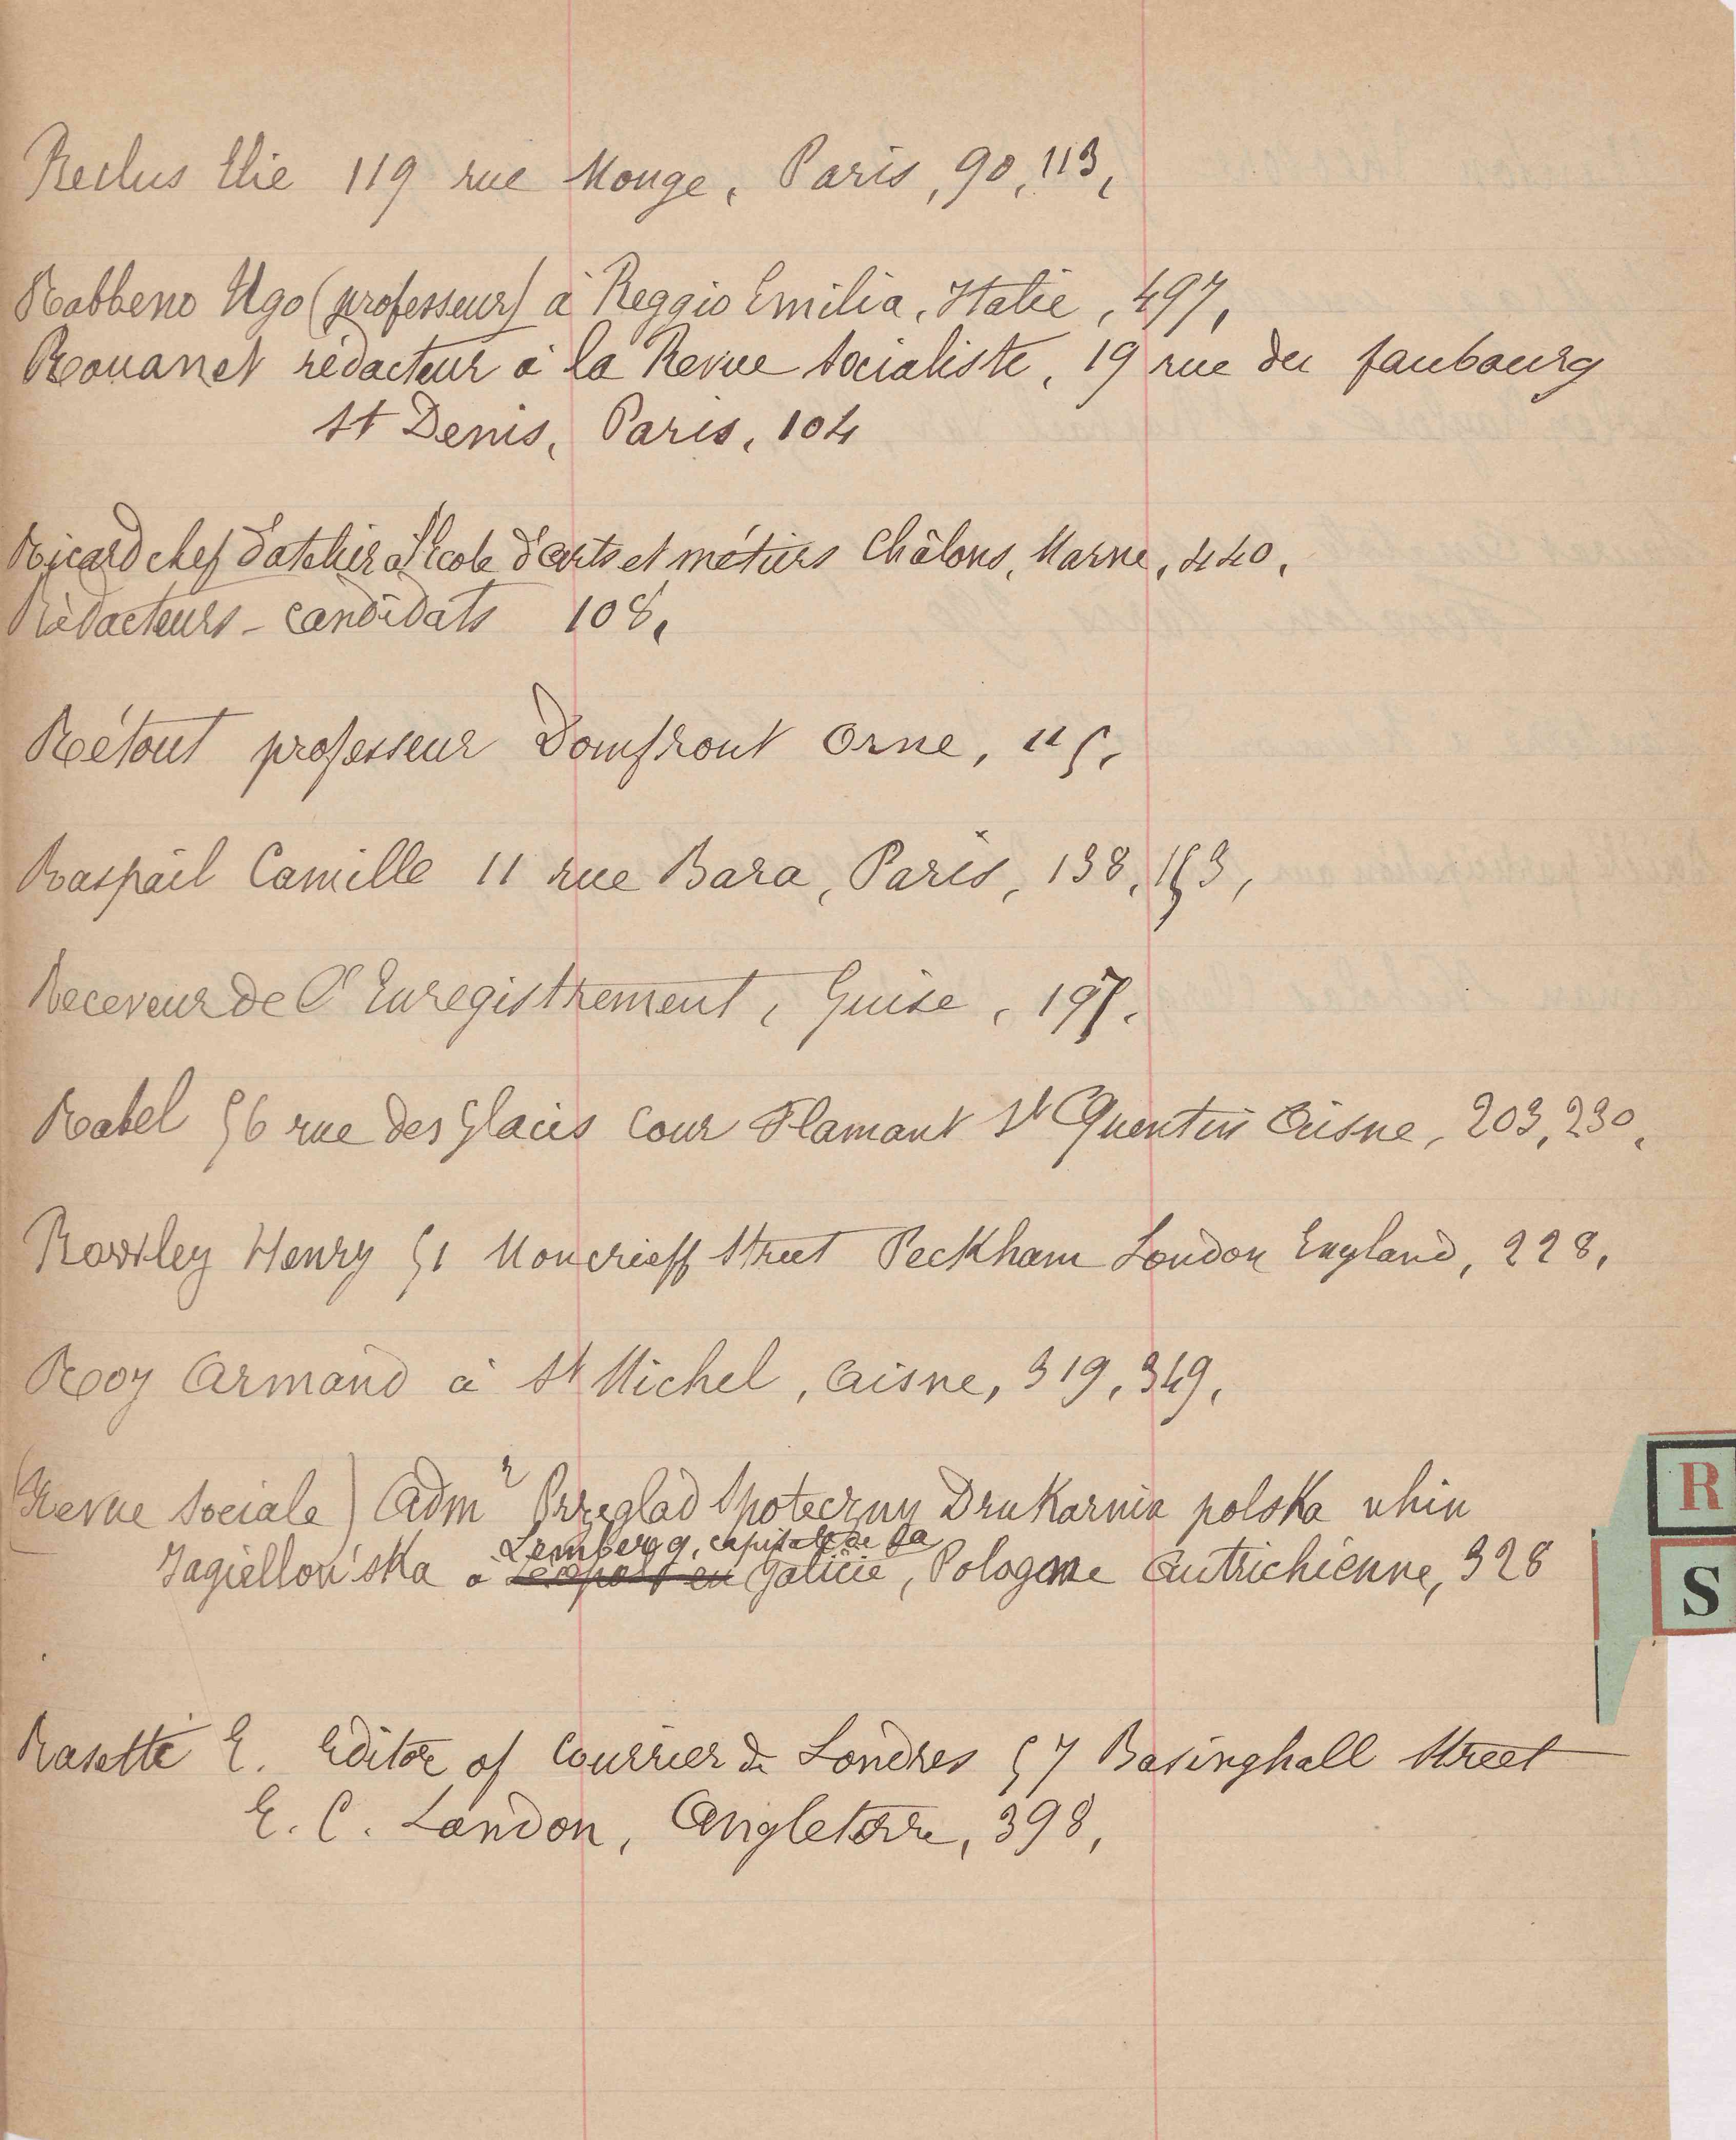 Reclus Elie 119 rue Monge, Paris, 90, 113,
Rabbeno Ugo (professeur) à Reggio Emilia, Italie, 497,
Rouanet rédacteur à la Revue socialiste, 19 rue du faubourg
St Denis, Paris, 104
Ricard chef d'atelier à l'école d'arts et métiers Châlons, Marne, 440,
Rédacteurs-candidats 108,
Rétout professeur Domfront Orne, 115,
Raspail Camille 11 rue Bara, Paris, 138, 153,
Receveur de l'Enregistrement, Guise, 197,
Rabel 56 rue des Glacis cour Flamant St Quentin Aisne, 203, 230,
Rowley Henry 51 Moncrieff Street Peckham London England, 228,
Roy Armand à St Michel, Aisne, 319, 349,
(Revue Sociale) Admr Przeglad Spoteczny Drukarnia polska uhin
Lemberg, capitale de la
Jagiellon'ska à Léopol en Galicie, Pologne Autrichienne, 328
Rasette E. Editor of Courrier de Londres 57 Basinghall Street
E. C. London, Angleterre, 398,
R
S